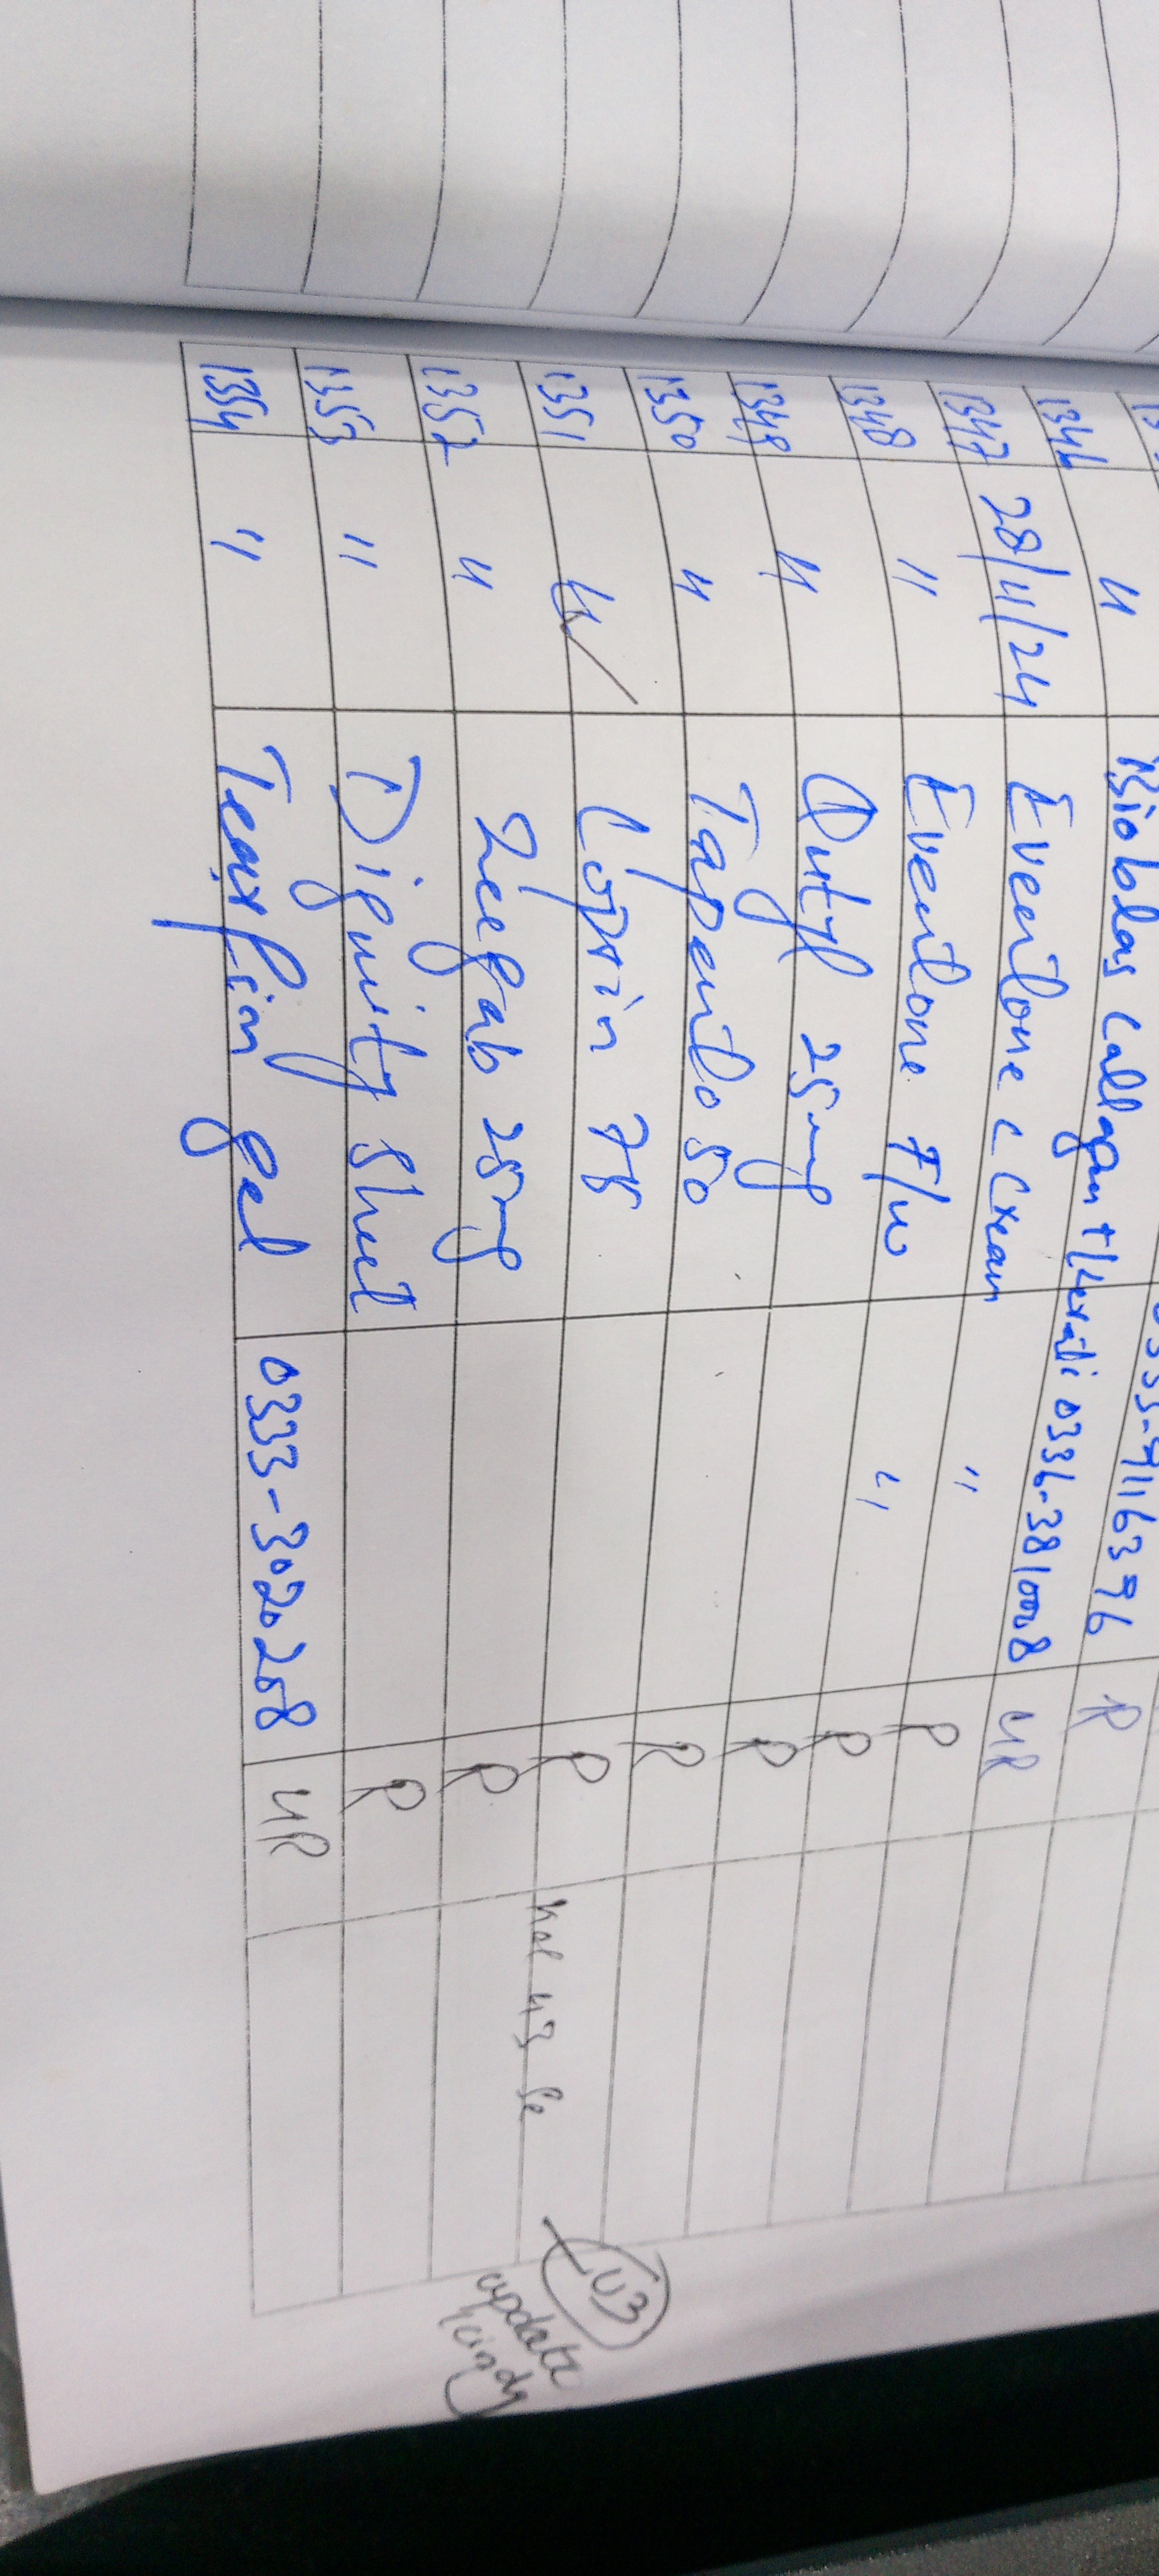 1346 " Bioblas Callagen + 0333-9116396 R
1347 28/11/24 Eventone C Cream 0336-3810008 UR
1348 " Eventone F/w " R
1349 " 25mg " R
1350 " Tapendo 50 R
1351 " Loprin 75 R
1352 " Zeegab 25mg R
1353 " Dignity Sheet R
1354 " Tearfin gel 0333-3020208 UR
43 se
U3
update